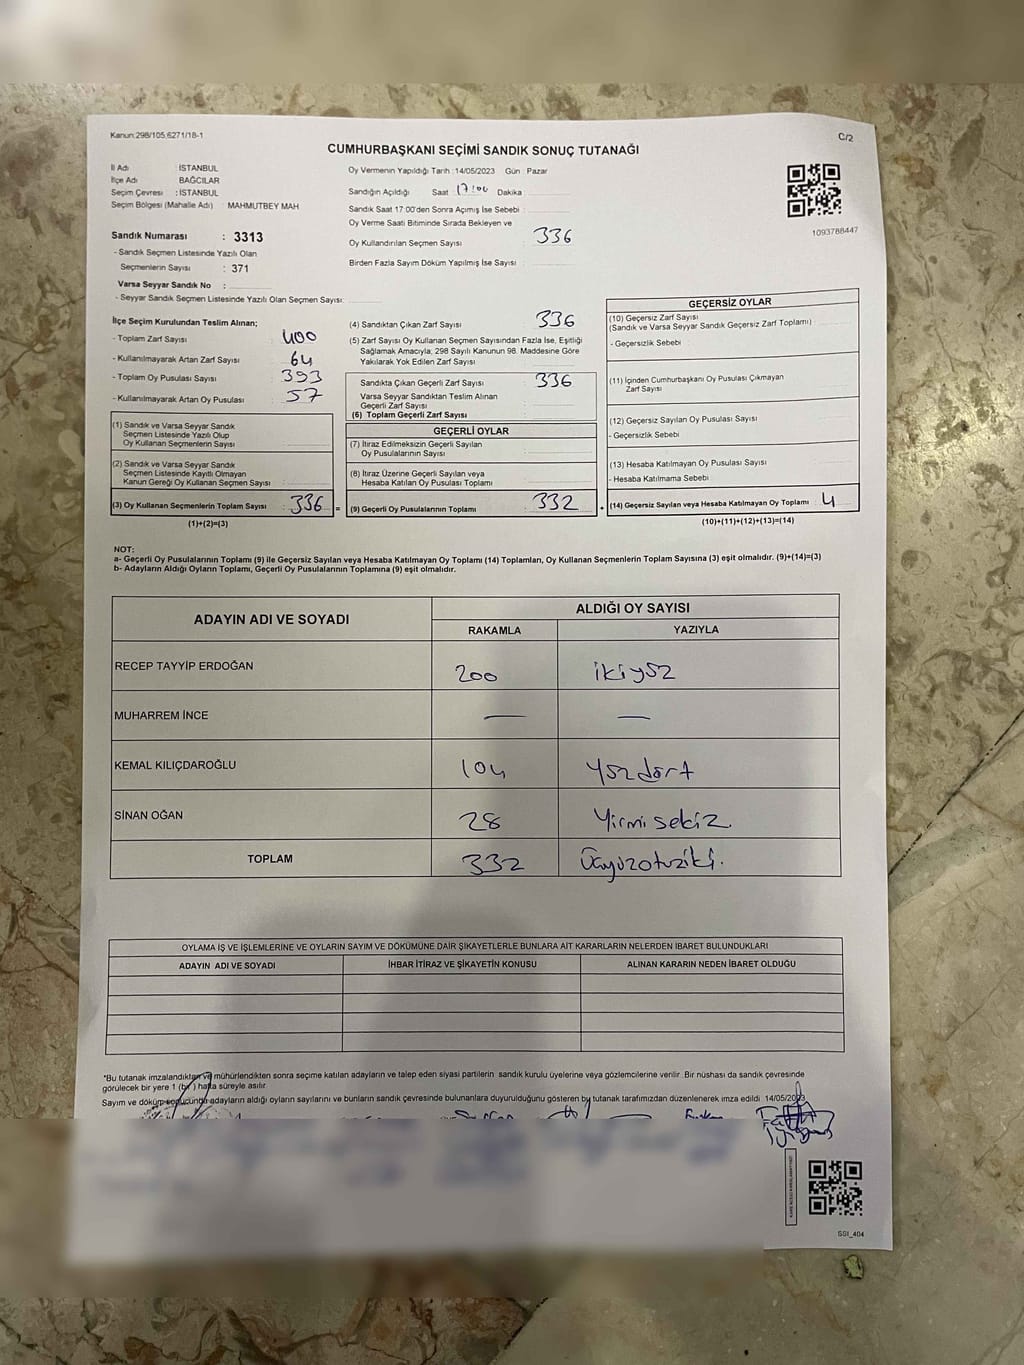 Kanun:298/105,6271/18-1
C/2
CUMHURBAŞKANI SEÇİMİ SANDIK SONUÇ TUTANAĞI
İl Adı : İSTANBUL
İlçe Adı : BAĞCILAR
Seçim Çevresi : İSTANBUL
Seçim Bölgesi (Mahalle Adı) : MAHMUTBEY MAH
Sandık Numarası : 3313
- Sandık Seçmen Listesinde Yazılı Olan
Seçmenlerin Sayısı : 371
Varsa Seyyar Sandık No :
- Seyyar Sandık Seçmen Listesinde Yazılı Olan Seçmen Sayısı:
Oy Vermenin Yapıldığı Tarih :14/05/2023 Gün : Pazar
Sandığın Açıldığı Saat : 17:00 Dakika :
Sandık Saat 17:00'den Sonra Açımış İse Sebebi :
Oy Verme Saati Bitiminde Sırada Bekleyen ve
Oy Kullandırılan Seçmen Sayısı : 336
Birden Fazla Sayım Döküm Yapılmış İse Sayısı :
1093788447
İlçe Seçim Kurulundan Teslim Alınan;
- Toplam Zarf Sayısı : 400
- Kullanılmayarak Artan Zarf Sayısı : 64
- Toplam Oy Pusulası Sayısı : 393
- Kullanılmayarak Artan Oy Pusulası : 57
(1) Sandık ve Varsa Seyyar Sandık
Seçmen Listesinde Yazılı Olup
Oy Kullanan Seçmenlerin Sayısı :
(2) Sandık ve Varsa Seyyar Sandık
Seçmen Listesinde Kayıtlı Olmayan
Kanun Gereği Oy Kullanan Seçmen Sayısı :
(3) Oy Kullanan Seçmenlerin Toplam Sayısı : 336 =
(1)+(2)=(3)
(4) Sandıktan Çıkan Zarf Sayısı : 336
(5) Zarf Sayısı Oy Kullanan Seçmen Sayısından Fazla İse, Eşitliği
Sağlamak Amacıyla; 298 Sayılı Kanunun 98. Maddesine Göre
Yakılarak Yok Edilen Zarf Sayısı :
Sandıkta Çıkan Geçerli Zarf Sayısı : 336
Varsa Seyyar Sandıktan Teslim Alınan
Geçerli Zarf Sayısı :
(6) Toplam Geçerli Zarf Sayısı :
GEÇERLİ OYLAR
(7) İtiraz Edilmeksizin Geçerli Sayılan
Oy Pusulalarının Sayısı :
(8) İtiraz Üzerine Geçerli Sayılan veya
Hesaba Katılan Oy Pusulası Toplamı :
(9) Geçerli Oy Pusulalarının Toplamı : 332 +
GEÇERSİZ OYLAR
(10) Geçersiz Zarf Sayısı :
(Sandık ve Varsa Seyyar Sandık Geçersiz Zarf Toplamı)
- Geçersizlik Sebebi :
(11) İçinden Cumhurbaşkanı Oy Pusulası Çıkmayan
Zarf Sayısı :
(12) Geçersiz Sayılan Oy Pusulası Sayısı :
- Geçersizlik Sebebi :
(13) Hesaba Katılmayan Oy Pusulası Sayısı :
- Hesaba Katılmama Sebebi :
(14) Geçersiz Sayılan veya Hesaba Katılmayan Oy Toplamı : 4
(10)+(11)+(12)+(13)=(14)
NOT:
a- Geçerli Oy Pusulalarının Toplamı (9) ile Geçersiz Sayılan veya Hesaba Katılmayan Oy Toplamı (14) Toplamları, Oy Kullanan Seçmenlerin Toplam Sayısına (3) eşit olmalıdır. (9)+(14)=(3)
b- Adayların Aldığı Oyların Toplamı, Geçerli Oy Pusulalarının Toplamına (9) eşit olmalıdır.
ADAYIN ADI VE SOYADI
ALDIĞI OY SAYISI
RAKAMLA YAZIYLA
RECEP TAYYİP ERDOĞAN 200 ikiyüz
MUHARREM İNCE — —
KEMAL KILIÇDAROĞLU 104 Yüzdört
SİNAN OĞAN 28 Yirmisekiz
TOPLAM 332 Üçyüzotuziki.
OYLAMA İŞ VE İŞLEMLERİNE VE OYLARIN SAYIM VE DÖKÜMÜNE DAİR ŞİKAYETLERLE BUNLARA AİT KARARLARIN NELERDEN İBARET BULUNDUKLARI
ADAYIN ADI VE SOYADI İHBAR İTİRAZ VE ŞİKAYETİN KONUSU ALINAN KARARIN NEDEN İBARET OLDUĞU
*Bu tutanak imzalandıktan ve mühürlendikten sonra seçime katılan adayların ve talep eden siyasi partilerin sandık kurulu üyelerine veya gözlemcilerine verilir. Bir nüshası da sandık çevresinde
görülecek bir yere 1 (bir) hafta süreyle asılır.
Sayım ve döküm sonucunda adayların aldığı oyların sayılarını ve bunların sandık çevresinde bulunanlara duyurulduğunu gösteren bu tutanak tarafımızdan düzenlenerek imza edildi. 14/05/2023
SSI_404